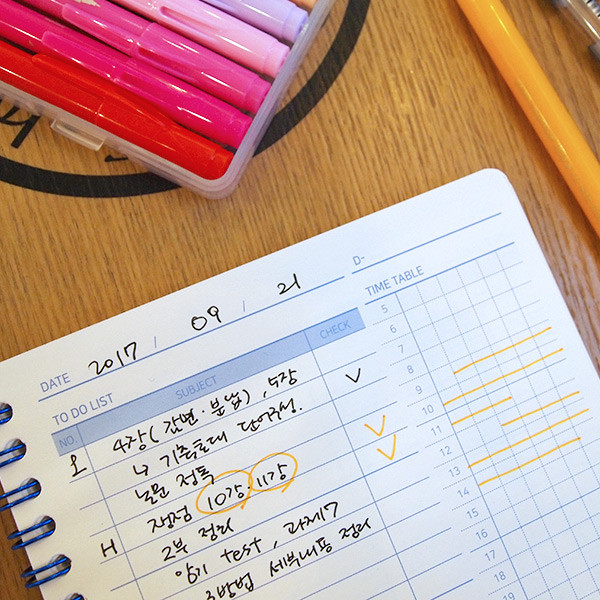 DATE 2017 / 09 / 21
D-
TO DO LIST
NO. SUBJECT CHECK
오 4장(감면·분납), 5장
↳ 기출토대 단어작성.
논문 정독
쟁점 10강·11강
H 2부 정리
암기 test, 과제7
세부내용 정리
TIME TABLE
5
6
7
8
9
10
11
12
13
14
15
16
17
18
19
h